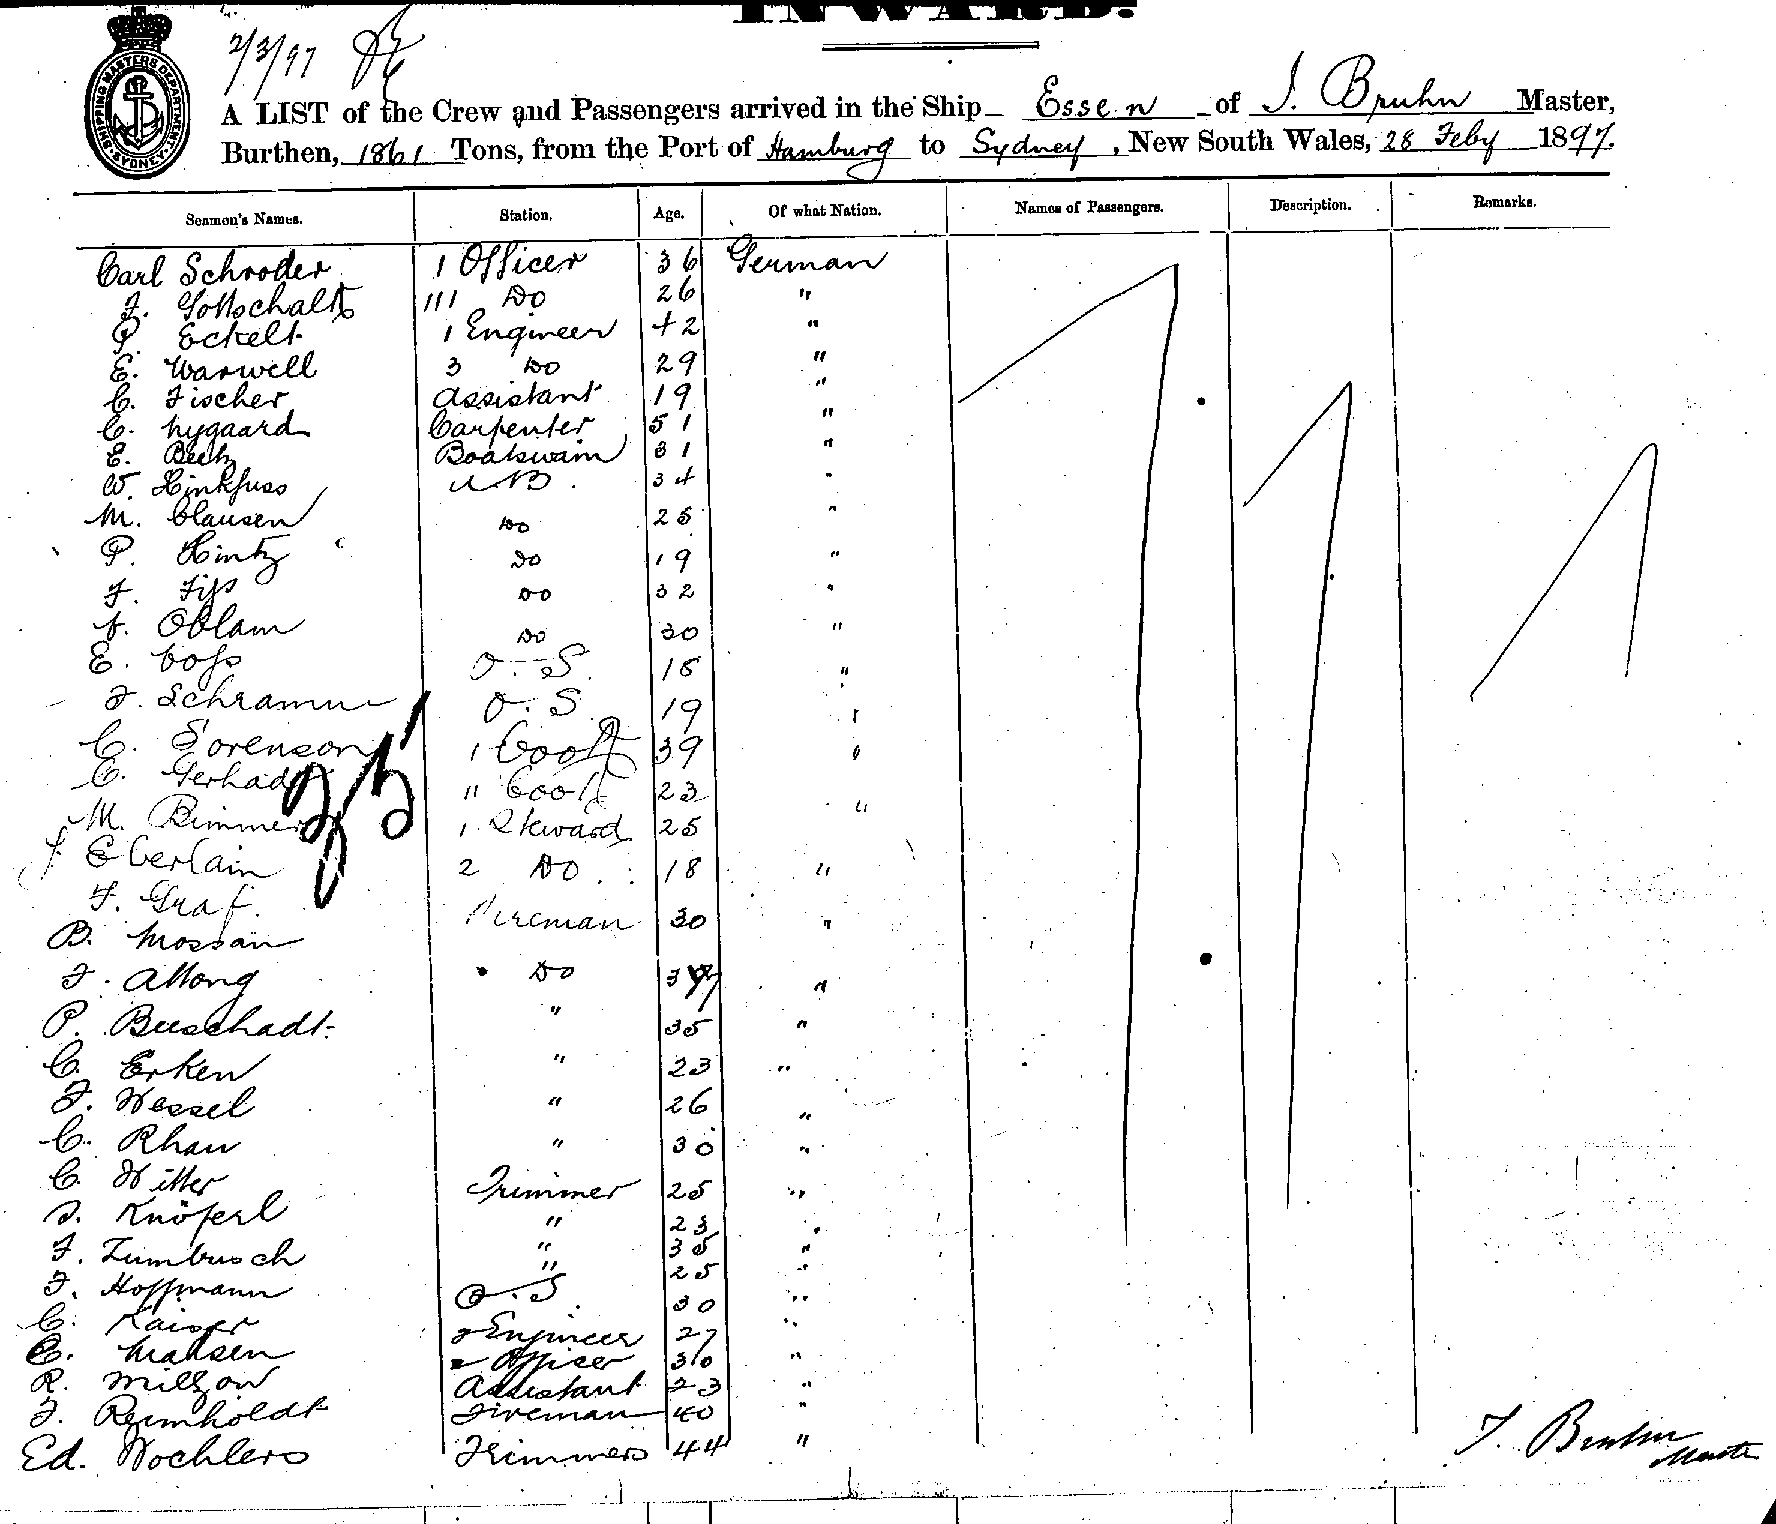 INWARD.
2/3/97
SHIPPING MASTERS DEPARTMENT SYDNEY
A LIST of the Crew and Passengers arrived in the Ship Essen of J. Bruhn Master,
Burthen, 1861 Tons, from the Port of Hamburg to Sydney, New South Wales, 28 Feby 1897.
Seamen's Names. Station. Age. Of what Nation. Names of Passengers. Description. Remarks.
Carl Schroder 1 Officer 36 German
F. Gottschalk III Do 26 "
P. Eckelt 1 Engineer 42 "
E. Warwell 3 Do 29 "
C. Fischer Assistant 19 "
C. Nygaard Carpenter 51 "
E. Beck Boatswain 31 "
W. Hinkfuss AB 34 "
M. Clausen Do 25 "
P. Hintz Do 19 "
F. Do 32 "
Oblam Do 30 "
E. Voss O.S. 18 "
F. Schramm O.S. 19 "
C. Sorenson 1 Cook 39 "
C. Gerhadt " Cook 23
M. Bimmer 1 Steward 25 "
J. Eberlain 2 Do 18 "
F. Graf. Fireman 30 "
B. Mossan
F. Attong Do 37 "
P. Buschadt " 35 "
C. Erken " 23 "
F. Wessel " 26 "
C. Rhau " 30 "
C. Witter Trimmer 25 "
J. Knöferl " 23 "
F. Zumbusch " 35 "
F. Hoffmann " 25 "
C. Kaiser O.S. 30 "
C. Madsen 2 Engineer 27 "
R. Milzow 2 Officer 30 "
F. Reimholdt Assistant 23 "
Ed. Wochlers Fireman 40 "
Trimmers 44 "
J. Bruhn
Master